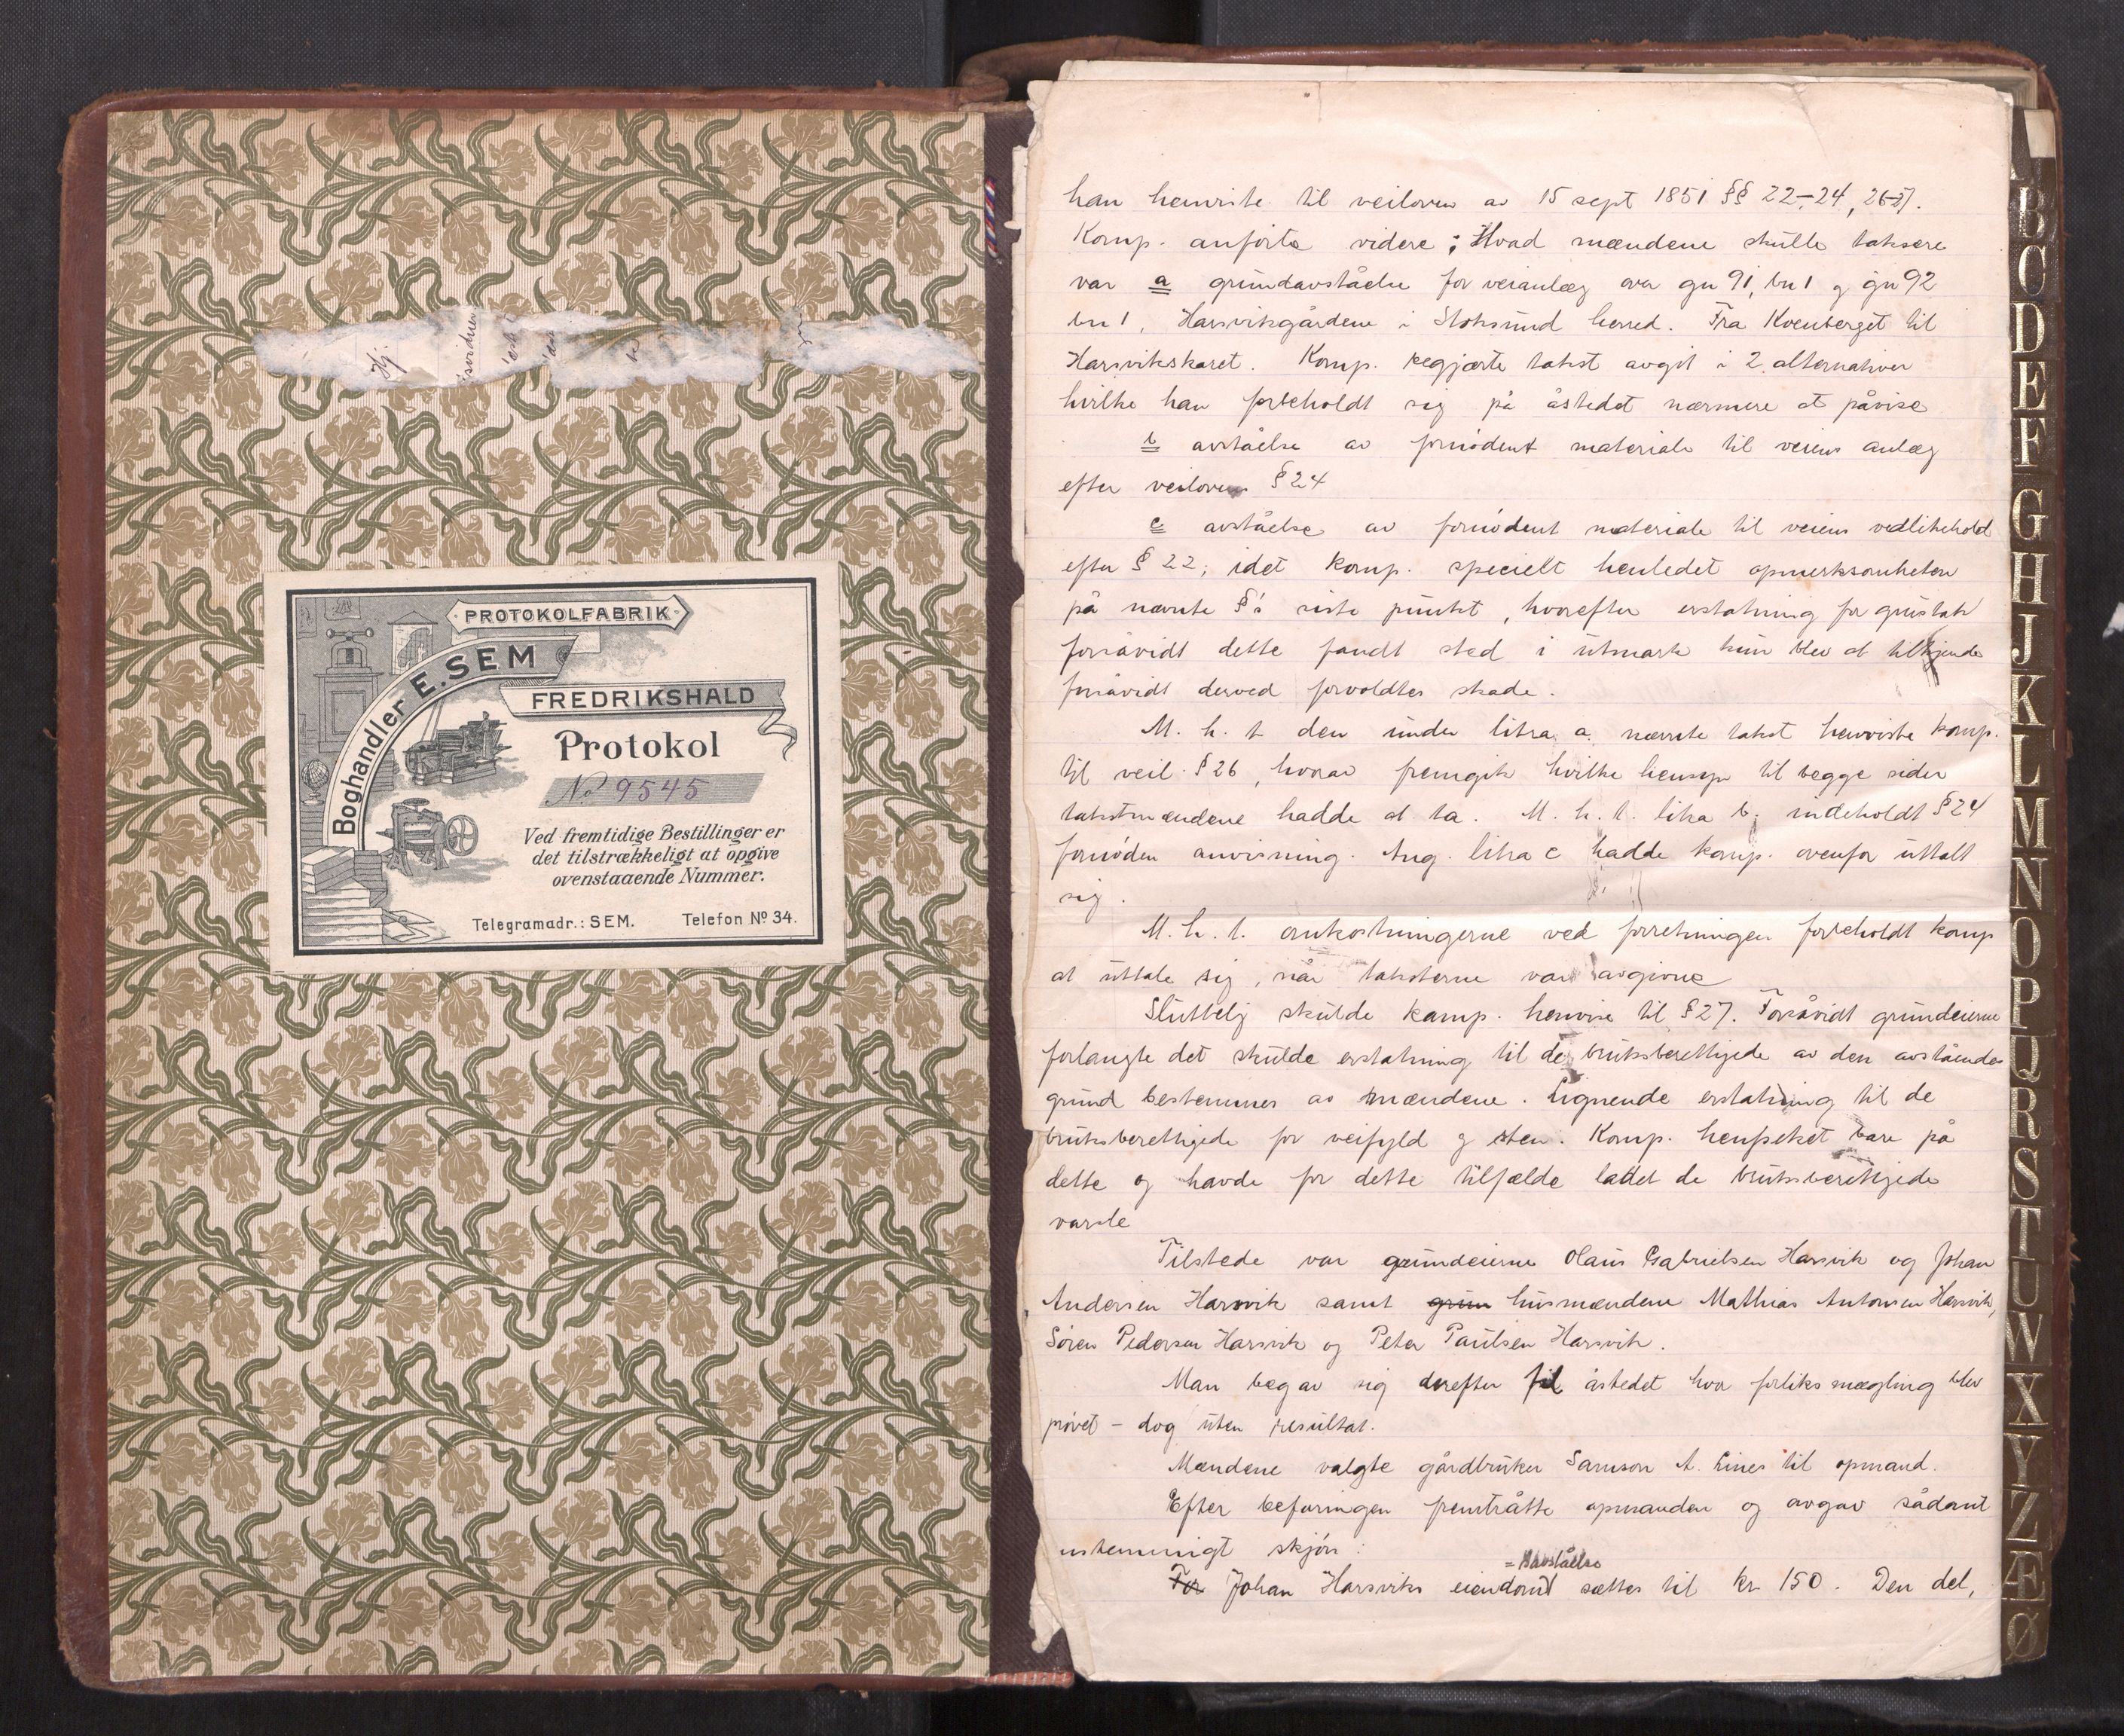 PROTOKOLFABRIK
Boghandler E. SEM
FREDRIKSHALD
Protokol
No 9545
Ved fremtidige Bestillinger er
det tilstrækkeligt at opgive
ovenstaaende Nummer.
Telegramadr.: SEM. Telefon No 34.
han henviste til veiloven av 15 sept 1851 §§ 22-24, 26-27.
Komp. anførte videre; Hvad mændene skulle taksere
var a grundavståelse for veianlæg over gn 91, bn 1 og gn 92
bn 1, Harsviksgårdene i Stoksund herred. Fra Kvenberget til
Harsvikskaret. Komp. begjærte takst avgit i 2 alternativer
hvilke han forbeholdt sig på åstedet nærmere at påvise
b avståelse av fornødent materiale til veiens anlæg
efter veilovens § 24
c avståelse av fornødent materiale til veiens vedlikehold
efter § 22, idet komp. specielt henledet opmerksomheten
på nævnte §'s siste punkt, hvorefter erstatning for grustak
forsåvidt dette fandt sted i utmark kun blev at tilkjende
forsåvidt derved forvoldtes skade.
M. h. t. den under litra a nævnte takst henviste komp.
til veil. § 26, hvorav fremgik hvilke hensyn til begge sider
takstmændene hadde at ta. M. h. t. litra b. indeholdt § 24
fornøden anvisning. Ang. litra c hadde komp. ovenfor uttalt
sig.
M. h. t. omkostningerne ved forretningen forbeholdt komp
at uttale sig, når taksterne var avgivne
Sluttelig skulde komp. henvise til § 27. Forsåvidt grundeierne
forlangte det skulde erstatning til de bruksberettigede av den avståendes
grund bestemmes av mændene. Lignende erstatning til de
bruksberettigede for veifyld og sten. Komp. henpeket bare på
dette og havde for dette tilfælde ladet de bruksberettigede
varsle
Tilstede var grundeierne Olaus Gabrielsen Harsvik og Johan
Andersen Harsvik samt grun husmændene Mathias Antonsen Harsvik,
Søren Pedersen Harsvik og Peter Paulsen Harsvik.
Man begav sig derefter til åstedet hvor forliksmægling blev
prøvet - dog uten resultat.
Mændene valgte gårdbruker Samson A. Lines til opmand.
Efter befaringen fremtrådte opmanden og avgav sådant
enstemmigt skjøn:
= avståelse
For Johan Harsviks eiendom sættes til kr 150. Den del,
B
C
D
E
F
G
H
J
K
L
M
N
O
P
Q
R
S
T
U
W
X
Y
Z
Æ
Ø